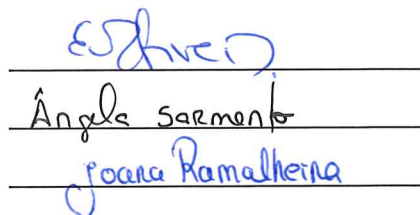 Ângela Sarmento
Joana Ramalheira